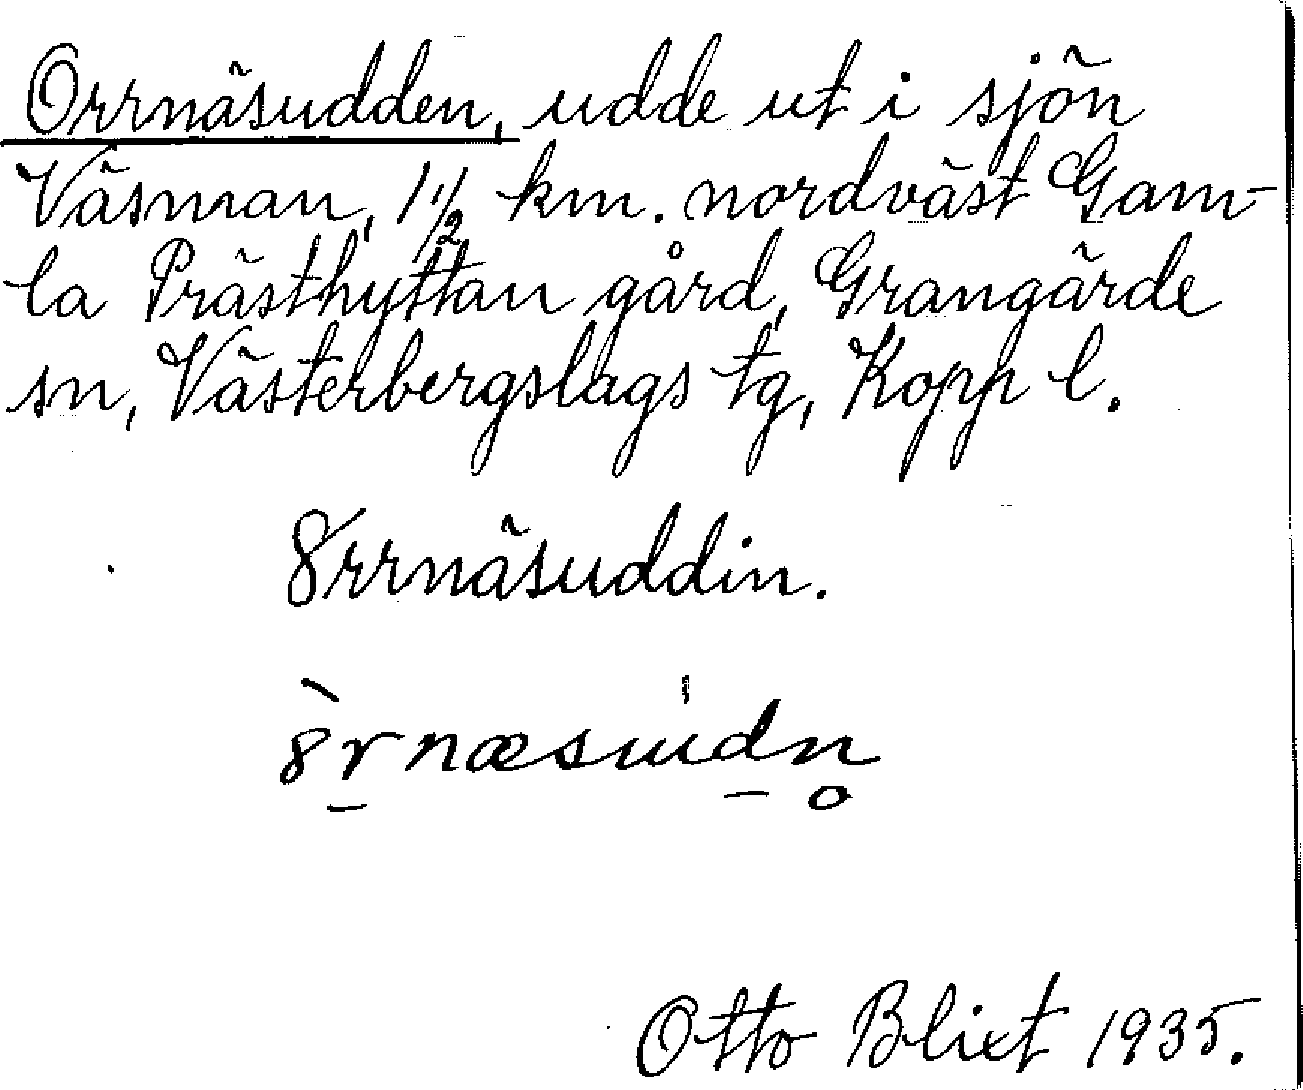 Orrnäsudden, udde ut i sjön
Väsman, 1 1/2 km. nordväst Gam-
la Prästhyttan gård, Grangärde
sn, Västerbergslags tg, Kopp l.
8rrnäsuddin.
8̀r̠næsu̍d̠n̥
Otto Blixt 1935.